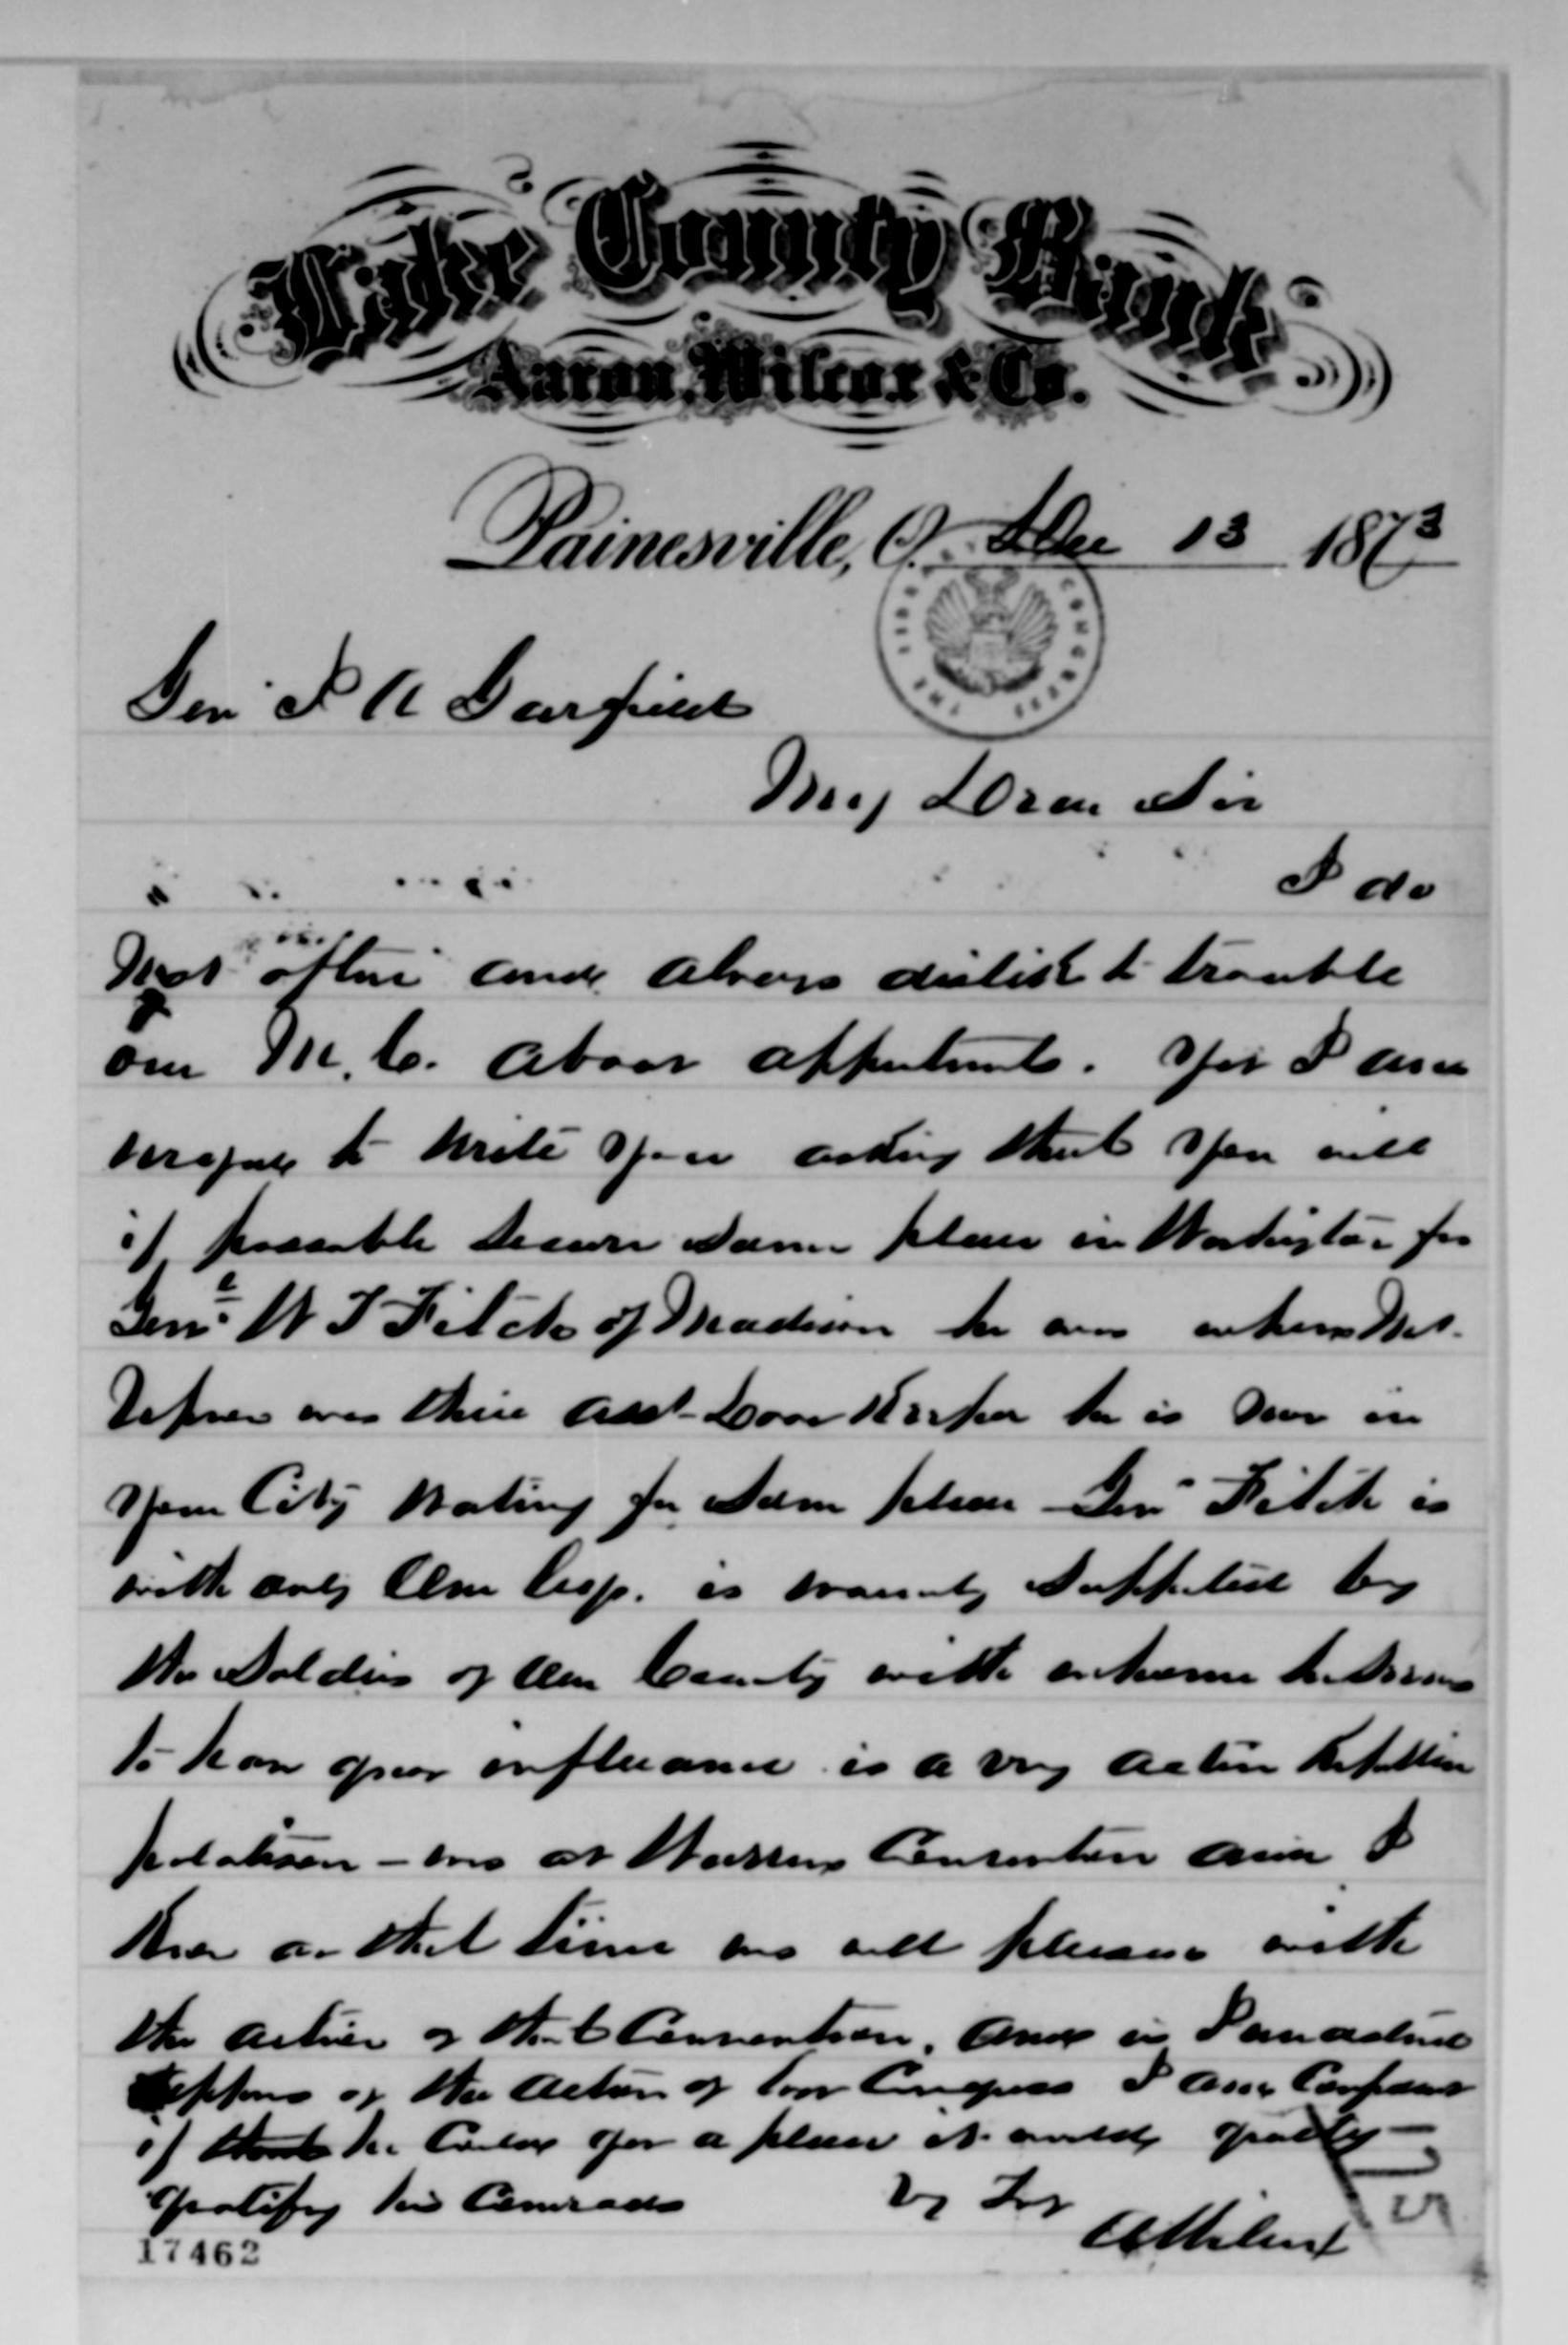 Lake County Bank
Aaron Wilcox & Co.
Painesville, O. Dec 13 1873
Gen J A Garfield
My Dear Sir
I do
Not often and always dislike to trouble
our M.C. about appointments. Yet I am
urged to write you asking that you will
if possible secure some place in Washington for
Genl W S Fitch of Madison he was
was there asst Door Keeper he is now in
your City waiting for some place - Gen Fitch is
with only One Leg. is warmly supported by
the Soldiers of Our County with whom he seems
to have great influence is a very active
politician - was at Warren Convention and I
know at that time was well pleased with
the action of that Convention, and is
of the action of Congress I am Confident
if he Could get a place it would greatly
gratify his Comrads
Vy Try
A Wilcox
17462